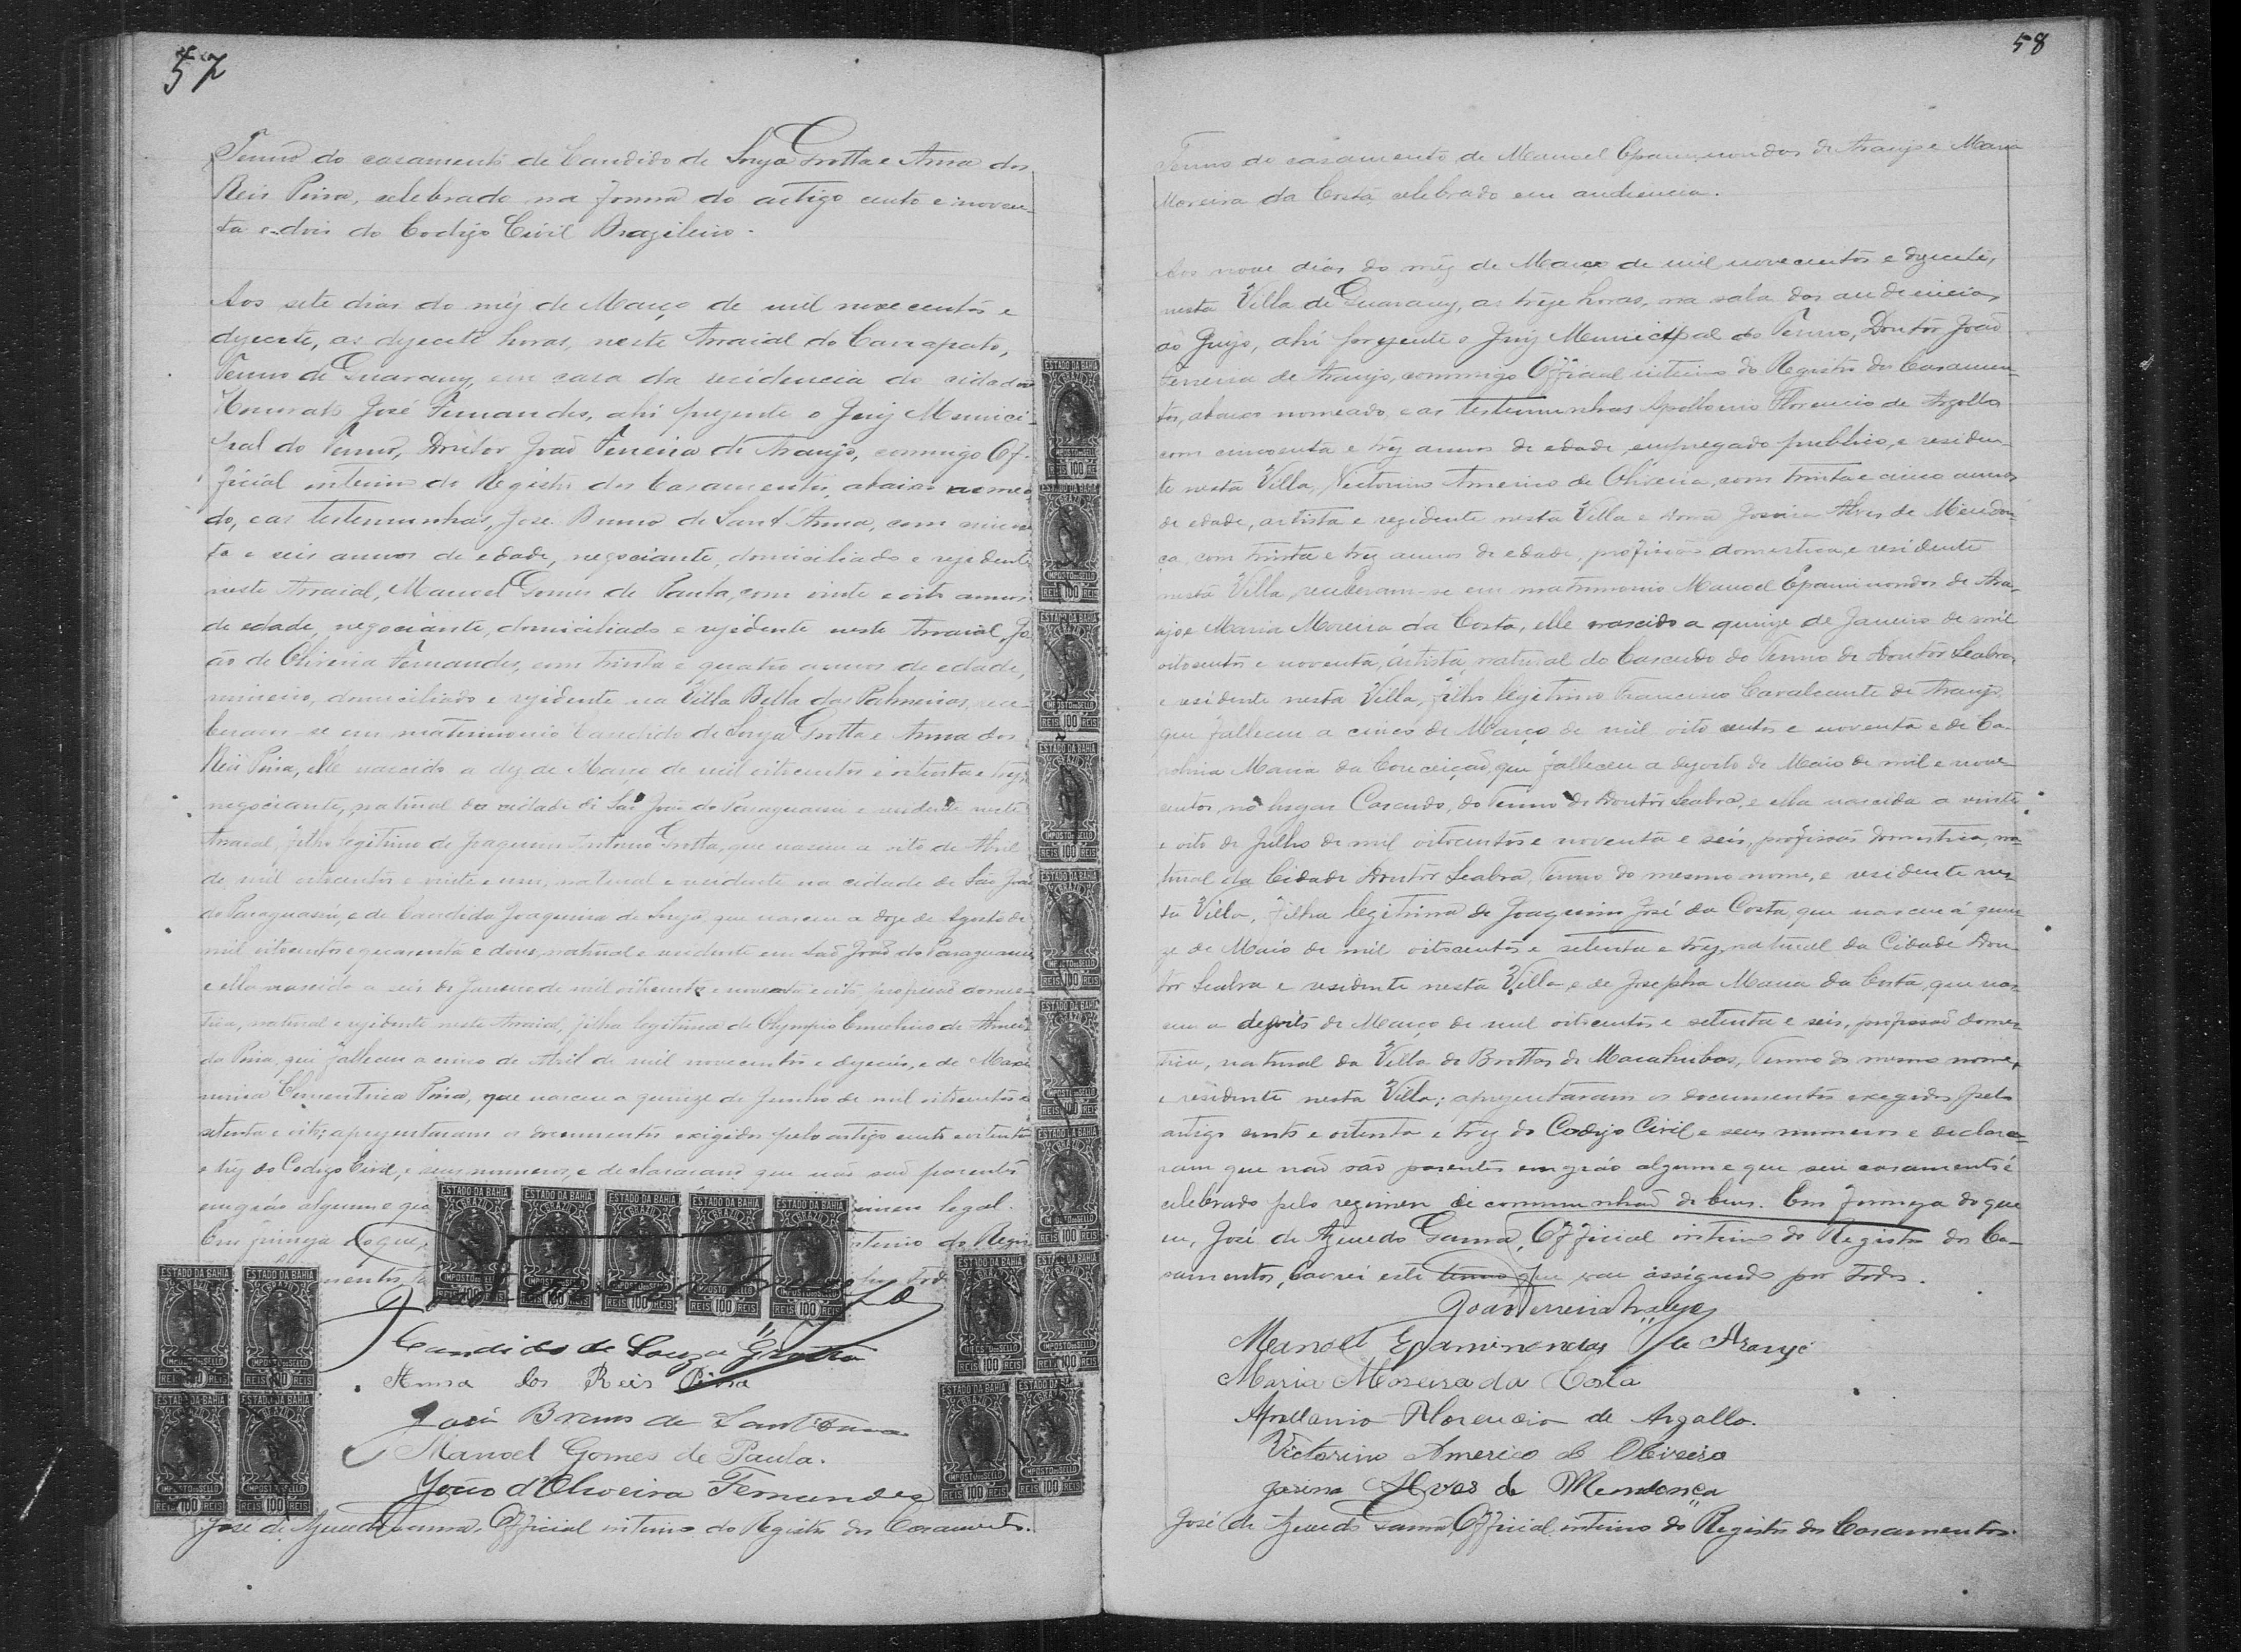 57
Termo do casamento de Candido de Souza Grotta e Anna dos
Reis Pina, celebrado na forma do artigo cento e noven-
ta e dois do Codigo Civil Brazileiro.
Aos sete dias do mez de Março de mil novecentos e
dezecete, as dezecete horas, neste Arraial do Carrapato,
Termo de Guarany, em casa da residencia do cidadão
Honorato José Fernandes, ahi prezente o Juiz Munici-
pal do Termo, Doutor João Ferreira de Araujo, commigo Of-
ficial interino do Registro dos Casamentos, abaixo nomea
do, e as testemunhas, José Bruno de Sant'Anna, com
ta e seis annos de edade, negociante, domiciliado e rezidente
neste Arraial, Manoel Gomes de Paula, com vinte e oito annos
de edade, negociante, domiciliado e rezidente neste Arraial, Jo
ão de Oliveira Fernandes, com trinta e quatro annos de edade,
mineiro, domiciliado e rezidente na Villa Bella das Palmeiras, rece-
beram-se em matrimonio Candido de Souza Grotta e Anna dos
Reis Pina, elle nascido a dez de Março de mil oitocentos e oitenta e trez,
negociante, natural da cidade de São João do Paraguassú e residente neste
Arraial, filho legitimo de Joaquim Antonio Grotta, que nasceu a oito de Abril
de mil oitocentos e vinte e um, natural e residente na cidade de São João
do Paraguassú, e de Candida Joaquina de Souza, que nasceu a doze de Agosto de
mil oitocentos e quarenta e dous, natural e residente em São João do Paraguassú
e ella nascida a seis de Janeiro de mil oitocentos e noventa e oito, profissão domes-
tica, natural e rezidente neste Arraial, filha legitima de Olympio de Almei
da Pina, que falleceu a cinco de Abril de mil novecentos e dezeseis, e de Maxi
miria Clementina Pina, que nasceu a quinze de Junho de mil oitocentos e
setenta e oito; aprezentaram os documentos exigidos pelo artigo cento e oitenta
e trez do Codigo Civil, e seus numeros, e declararam que não são parentes
em gráo algum e que legal.
Em firmeza do que, interino do Regis
Candido de Souza Grotta
Anna dos Reis Pina
José Bruno de Sant'Anna
Manoel Gomes de Paula.
João d'Oliveira Fernandes
José de Azevedo Gama, Official interino do Registro dos Casamentos.
ESTADO DA BAHIA
BRAZIL
IMPOSTO DO SELLO
REIS 100 REIS
58
Termo do casamento de Manoel Epaminondas de Araujo e Maria
Moreira da Costa, celebrado em audiencia.
Aos nove dias do mez de Março de mil novecentos e dezecete,
nesta Villa de Guarany, as treze horas, na sala das audiencias
do Juizo, ahi prezente o Juiz Municipal do Termo, Doutor João
Ferreira de Araujo, commigo Official interino do Registro dos Casamen-
tos, abaixo nomeado, e as testemunhas Apollonio Florencio de Argollo
com cincoenta e trez annos de edade, empregado publico, e residen-
te nesta Villa, Victorino Americo de Oliveira, com trinta e cinco annos
de edade, artista e rezidente nesta Villa e Dona Josina Alves de Mendon-
ça, com trinta e trez annos de edade, profissão domestica, e residente
nesta Villa, receberam-se em matrimonio Manoel Epaminondas de Ara-
ujo e Maria Moreira da Costa, elle nascido a quinze de Janeiro de mil
oitocentos e noventa, artista, natural do Cascudo do Termo de Doutor Seabra
e residente nesta Villa, filho legitimo Francisco Cavalcante de Araujo,
que falleceu a cinco de Março de mil oito centos e noventa e de Ca-
rolina Maria da Conceição, que falleceu a dezoito de Maio de mil e nove-
centos, no lugar Cascudo, do Termo de Doutor Seabra, e ella nascida a vinte
e oito de Julho de mil oitocentos e noventa e seis, profissão domestica, na-
tural da Cidade Doutor Seabra, Termo do mesmo nome, e residente nes-
ta Villa, filha legitima de Joaquim José da Costa, que nasceu á quin
ze de Maio de mil oitocentos e setenta e trez, natural da Cidade Dou-
tor Seabra e residente nesta Villa, e de Josepha Maria da Costa, que nas-
ceu a dezoito de Março de mil oitocentos e setenta e seis, profissão domes-
tica, natural da Villa de Brottas de Macahubas, Termo do mesmo nome,
e residente nesta Villa; aprezentaram os documentos exegidos pelo
artigo cento e oitenta e trez do Codigo Civil e seus numeros e declara-
ram que não são parentes em gráo algum e que seu casamento é
celebrado pelo regimen de communhão de bens. Em firmeza do que
eu, José de Azevedo Gama, Official interino do Registro dos Ca-
samentos, lavrei este termo que vae assignado por todos.
João Ferreira Araujo
Manoel Epaminondas de Araujo
Maria Moreira da Costa
Apollonio Florencio de Argollo.
Victorino Americo de Oliveira
Josina Alvas de Mendonça
José de Azevedo Gama, Official interino do Registro dos Casamentos.